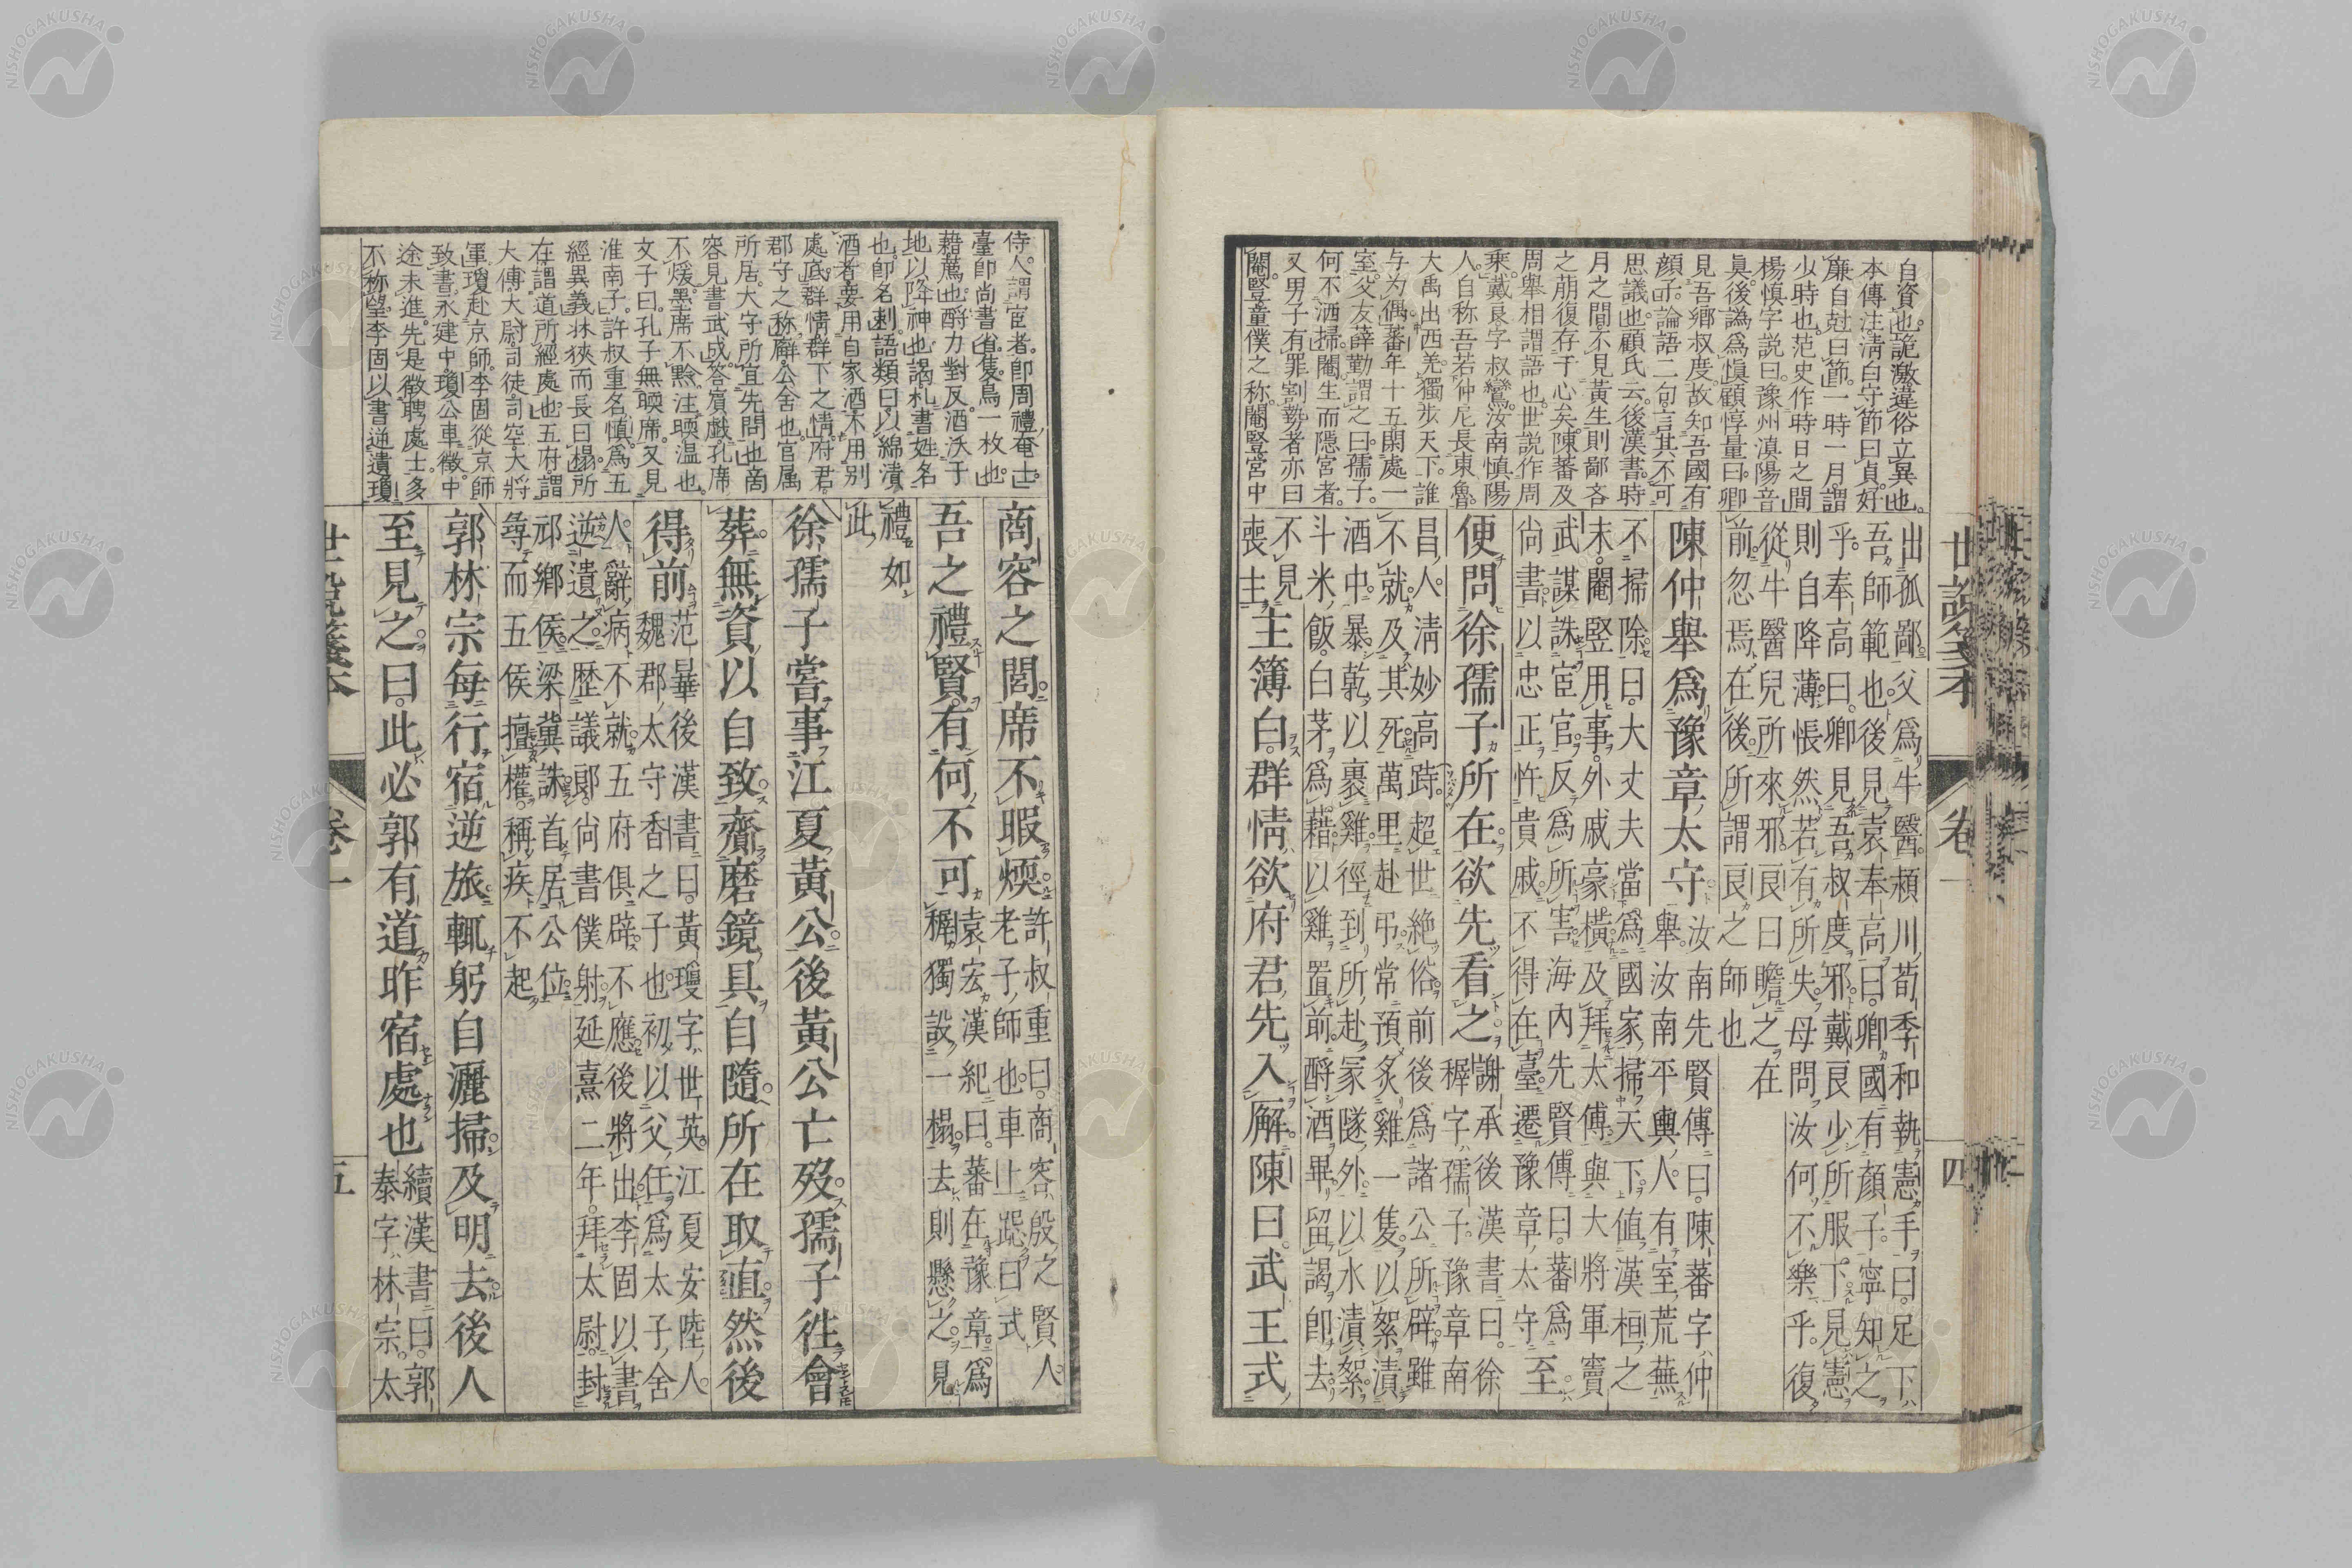 自資也。詭激違俗立異也。
本傳注清白守節曰貞。好
廉自尅曰節。一時一月。謂
少時也。范史作時日之間
楊愼字説曰。豫州滇陽音
眞。後譌爲愼。顧惇量曰。卿
見吾鄉叔度。故知吾國有
顏子。論語二句。言其不可
思議也。顧氏云。後漢書。時
月之間不見黃生則鄙吝
之萠復存于心矣。陳蕃及
周舉相謂語也。世説作周
乘。戴良字叔鸞。汝南愼陽
人。自称吾若仲尼長東魯。
大禹出西羌。獨步天下。誰
与为偶。蕃年十五。閑處一
室。父友薛勤謂之曰。孺子。
何不洒掃。閹生而隱宮者。
又男子有罪割勢者亦曰
閹。豎童僕之称。閹豎宮中
出孤鄙。父爲牛醫。頴川荀季和執憲手曰。足下
吾師範也。後見袁奉高曰。卿國有顏子。寧知之
乎。奉高曰。卿見吾叔度邪。戴良少所服下。見憲
則自降薄。悵然若有所失。母問汝何不樂乎。復
從牛醫兒所來邪。良曰。瞻之在
前。忽焉在後。所謂良之師也
陳仲舉爲豫章太守
汝南先賢傳曰。陳蕃字仲
舉。汝南平輿人。有室荒蕪
不掃除。曰。大丈夫當爲國家掃天下。値漢桓之
末。閹豎用事。外戚豪橫。及拜太傅。與大將軍竇
武謀誅宦官。反爲所害。海內先賢傳曰。蕃爲
尙書。以忠正忤貴戚。不得在臺。遷豫章太守
至
便問徐孺子所在。欲先看之。
謝承後漢書曰。徐
穉字孺子。豫章南
昌人。淸妙高跱。超世絶俗。前後爲諸公所辟。雖
不就。及其死。萬里赴吊。常預炙雞一隻。以絮漬
酒中。暴乾以裹雞。徑到所赴冢隧外。以水漬絮。
斗米飯。白茅爲藉。以雞置前。酹酒畢。留謁即去。
不見
喪主
主簿白。群情欲府君先入廨。陳曰。武王式
世説箋本
卷一
四
侍人。謂宦者。即周禮奄士。
臺即尚書省。隻鳥一枚也。
藉薦也。酹力對反。酒沃于
地以降神也。謁札書姓名
也。即名刺。語類曰。以綿漬
酒者。要用自家酒不用別
處底。群情群下之情。府君。
郡守之称。廨公舍也。官属
所居。大守所宜先問也。商
容見書武成。答賓戯。孔席
不煖。墨席不黔。注。暎温也。
文子曰。孔子無暎席。又見
淮南子。許叔重名愼。爲五
經異義。牀狹而長曰榻。所
在謂道所經處也。五府。謂
大傅。大尉。司徒。司空。大將
軍。瓊赴京師。李固從京師
致書。永建中。瓊公車徵。中
途未進。先是徵聘處士。多
不称望。李固以書逆遺瓊
商容之閭。席不暇煗。
許叔重曰。商容殷之賢人。
老子師也。車上跽曰式
吾之禮賢。有何不可
袁宏漢紀曰。蕃在豫章。爲
穉獨設一榻。去則懸之。見
禮如
此
徐孺子嘗事江夏黃公。後黃公亡歿。孺子徃會
葬。無資以自致。齎磨鏡具自隨。所在取直。然後
得前
范曄後漢書曰。黃瓊字世英。江夏安陸人。
魏郡太守香之子也。初以父任爲太子舍
人。辭病不就。五府俱辟。不應。後將出。李固以書
逆遺之。歷議郞。尙書僕射。延熹二年。拜太尉。封
邟鄉侯。梁冀誅。首居公位。
尋而五侯擅權。稱疾不起
郭林宗每行宿逆旅。輒躬自灑掃。及明去。後人
至見之曰。此必郭有道昨宿處也
續漢書曰。郭
泰字林宗。太
世説箋本
卷一
五